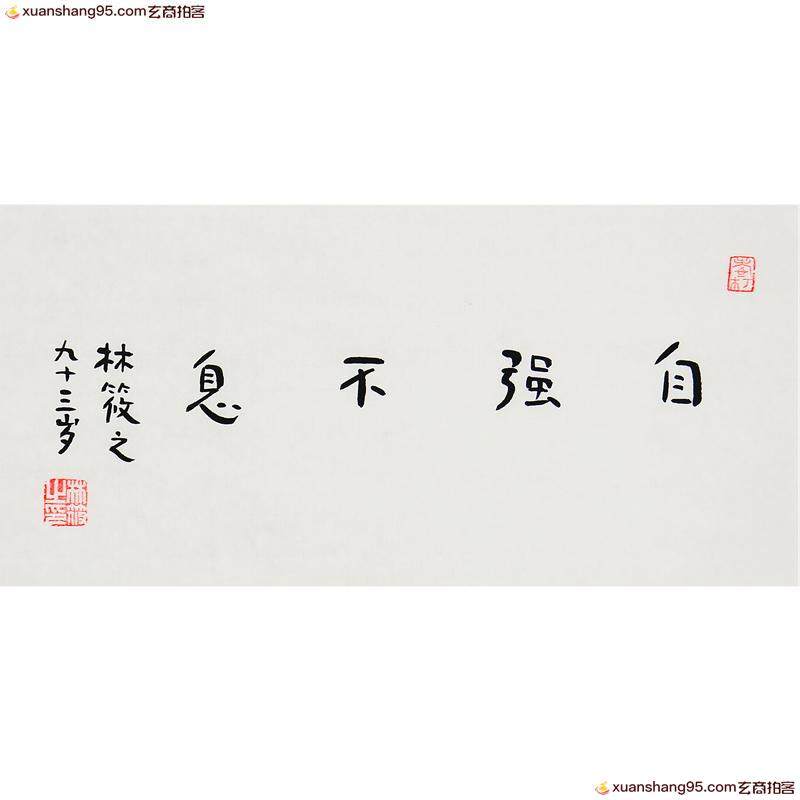 xuanshang95.com玄商拍客
自强不息
林筱之
九十三岁
xuanshang95.com玄商拍客